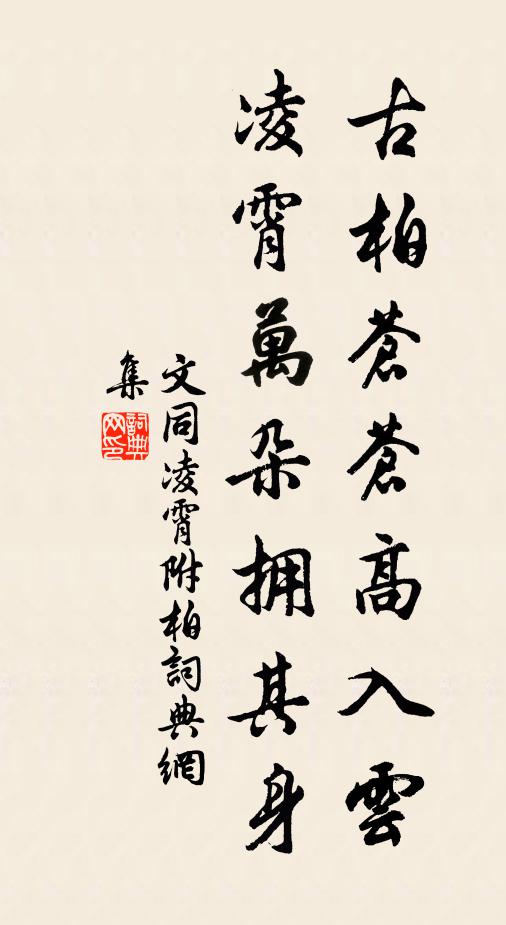 古柏蒼蒼高入雲
凌霄萬朵拥其身
文同凌霄附柏詞典網
集
詞典
网印